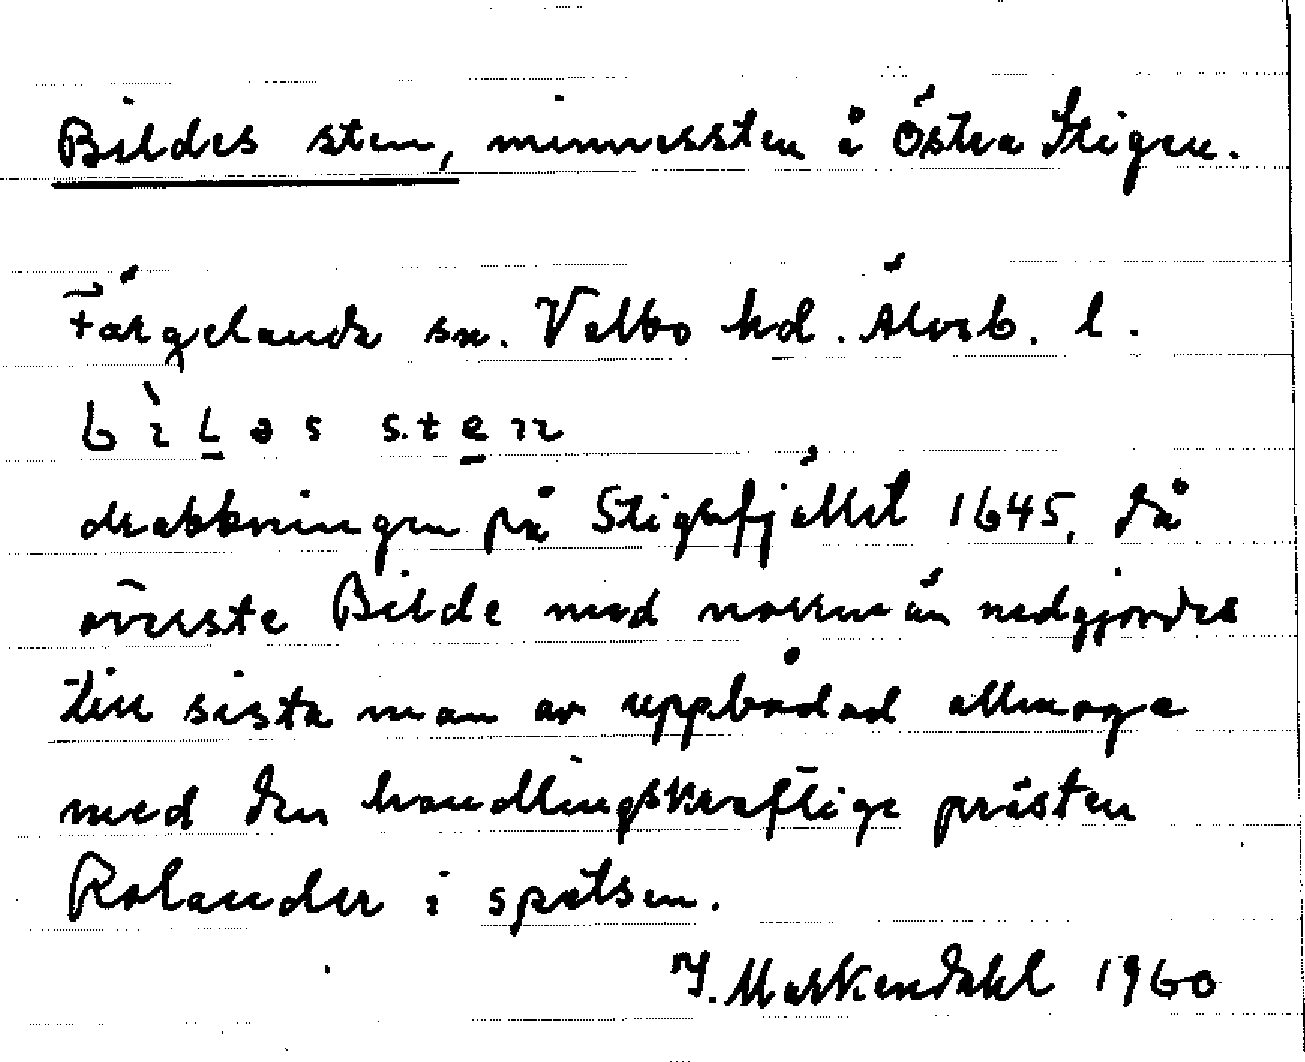 Bildes sten, minnessten å Östra Stigen.
Färgelanda sn. Valbo hd. Älvsb. l.
bìLəs sten
drabbningen på Stigsfjället 1645, då
överste Bilde med norrmän nedgjordes
till sista man av uppbådad allmoge
med den handlingskraftige prästen
Rolander i spetsen.
J. Markendahl 1960